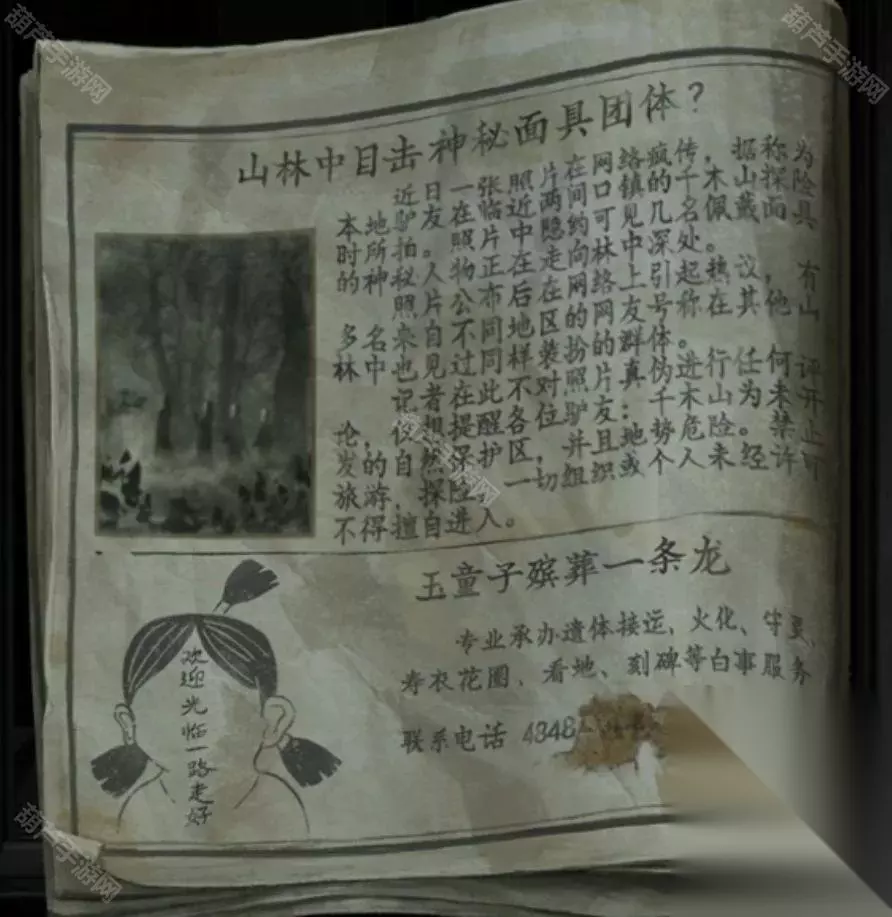 葫芦手游网
葫芦手游网
山林中目击神秘面具团体？
近日一张照片在网络疯传，据称为
本地驴友在临近两间口镇的千木山探险
时所拍。照片中隐约可见几名佩戴面具
的神秘人物正在走向林中深处。
照片公布后在网络上引起热议，有
多名来自不同地区的网友号称在其他山
林中也见过同样装扮的群体。
记者在此不对照片真伪进行任何评
论，仅想提醒各位驴友：千木山为未开
发的自然保护区，并且地势危险。禁止
旅游、探险，一切组织或个人未经许可
不得擅自进入。
葫芦手游网
玉童子殡葬一条龙
专业承办遗体接运、火化、守灵、
寿衣花圈、看地、刻碑等白事服务
联系电话 4848
欢迎光临一路走好
葫芦手游网